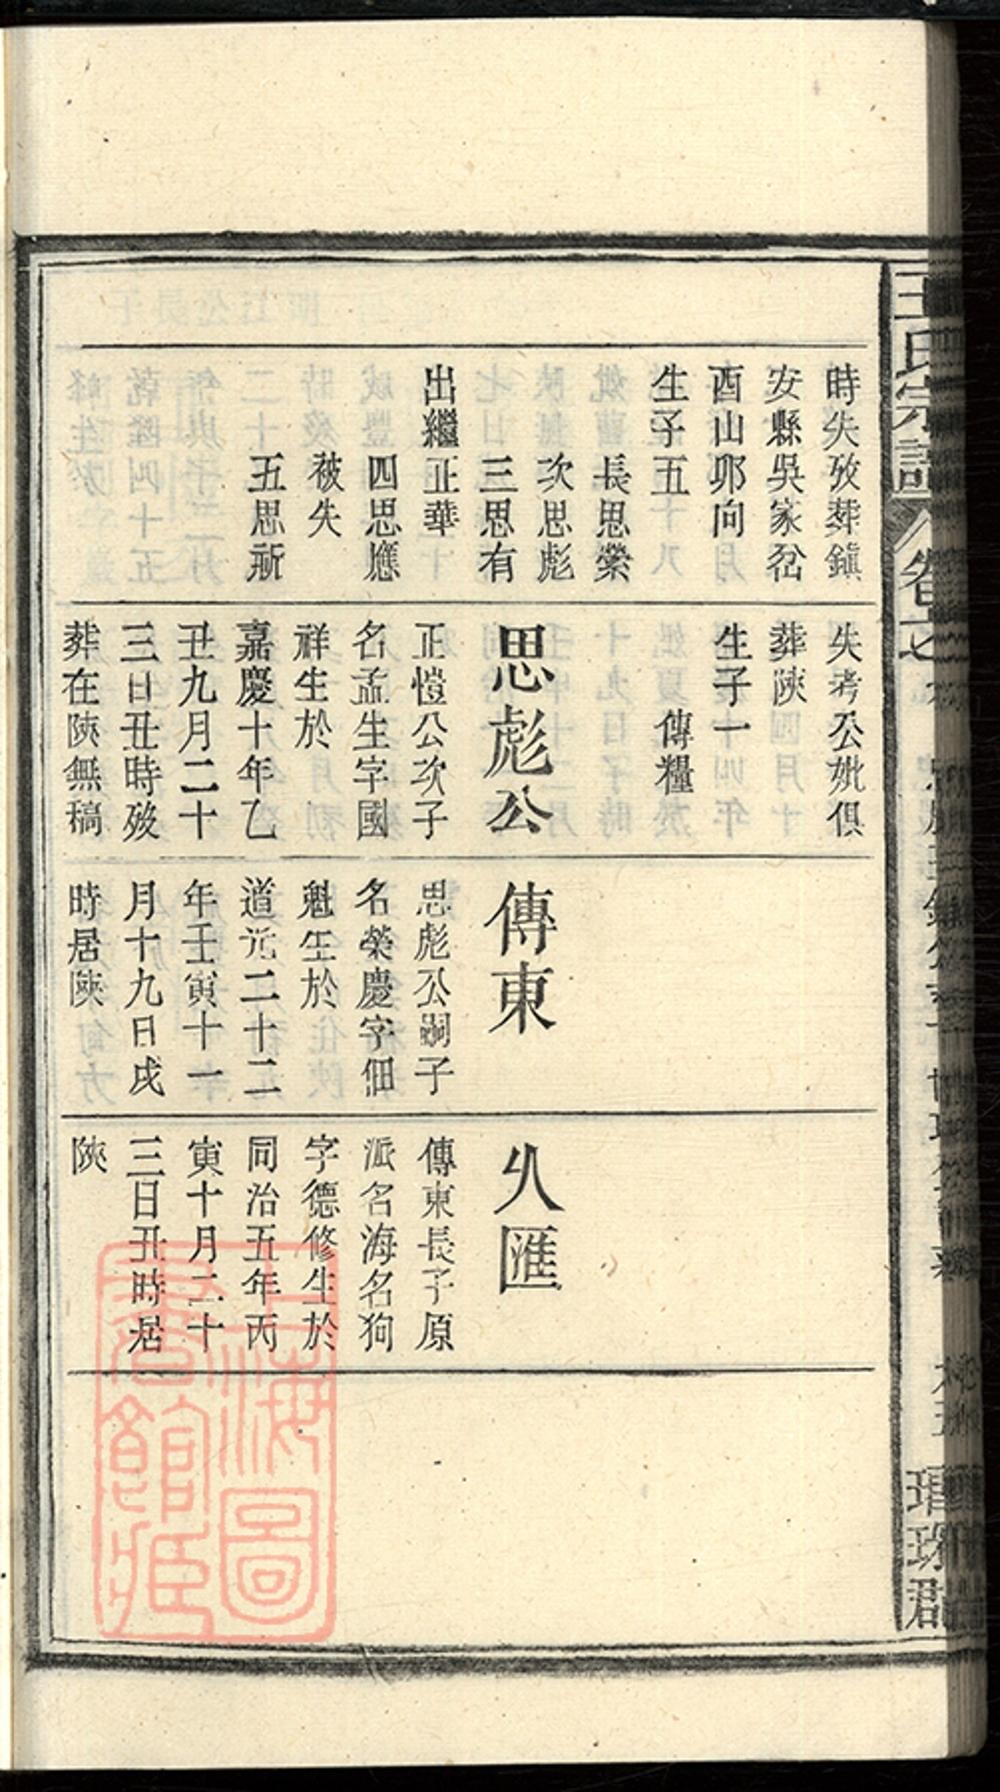 王氏宗譜
卷七
時失歿葬鎮
安縣吳家岔
酉山卯向
生子五
長思榮
次思彪
三思有
出繼正華
四思應
被失
五思新
失考公妣俱
葬陝
生子一
傳糧
思彪公
正愷公次子
名孟生字國
祥生於
嘉慶十年乙
丑九月二十
三日丑時歿
葬在陝無稿
傳東
思彪公嗣子
名榮慶字佃
魁生於
道光二十二
年壬寅十一
月十九日戌
時居陝
久匯
傳東長子原
派名海名狗
字德修生於
同治五年丙
寅十月二十
三日丑時居
陝
上海圖
書館藏